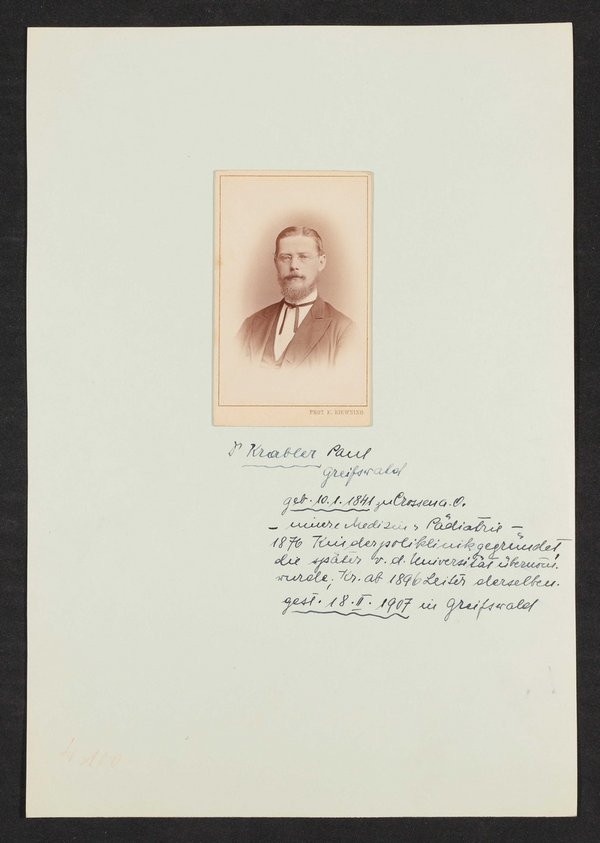 Dr Krabler Paul
Greifswald
geb. 10.1.1841 zu Crossen a.O.
- innere Medizin u. Pädiatrie -
1876 Kinderpoliklinik gegründet,
die später v.d. Universität übernom.
wurde, Kr. ab 1896 Leiter derselben.
gest. 18.II.1907 in Greifswald